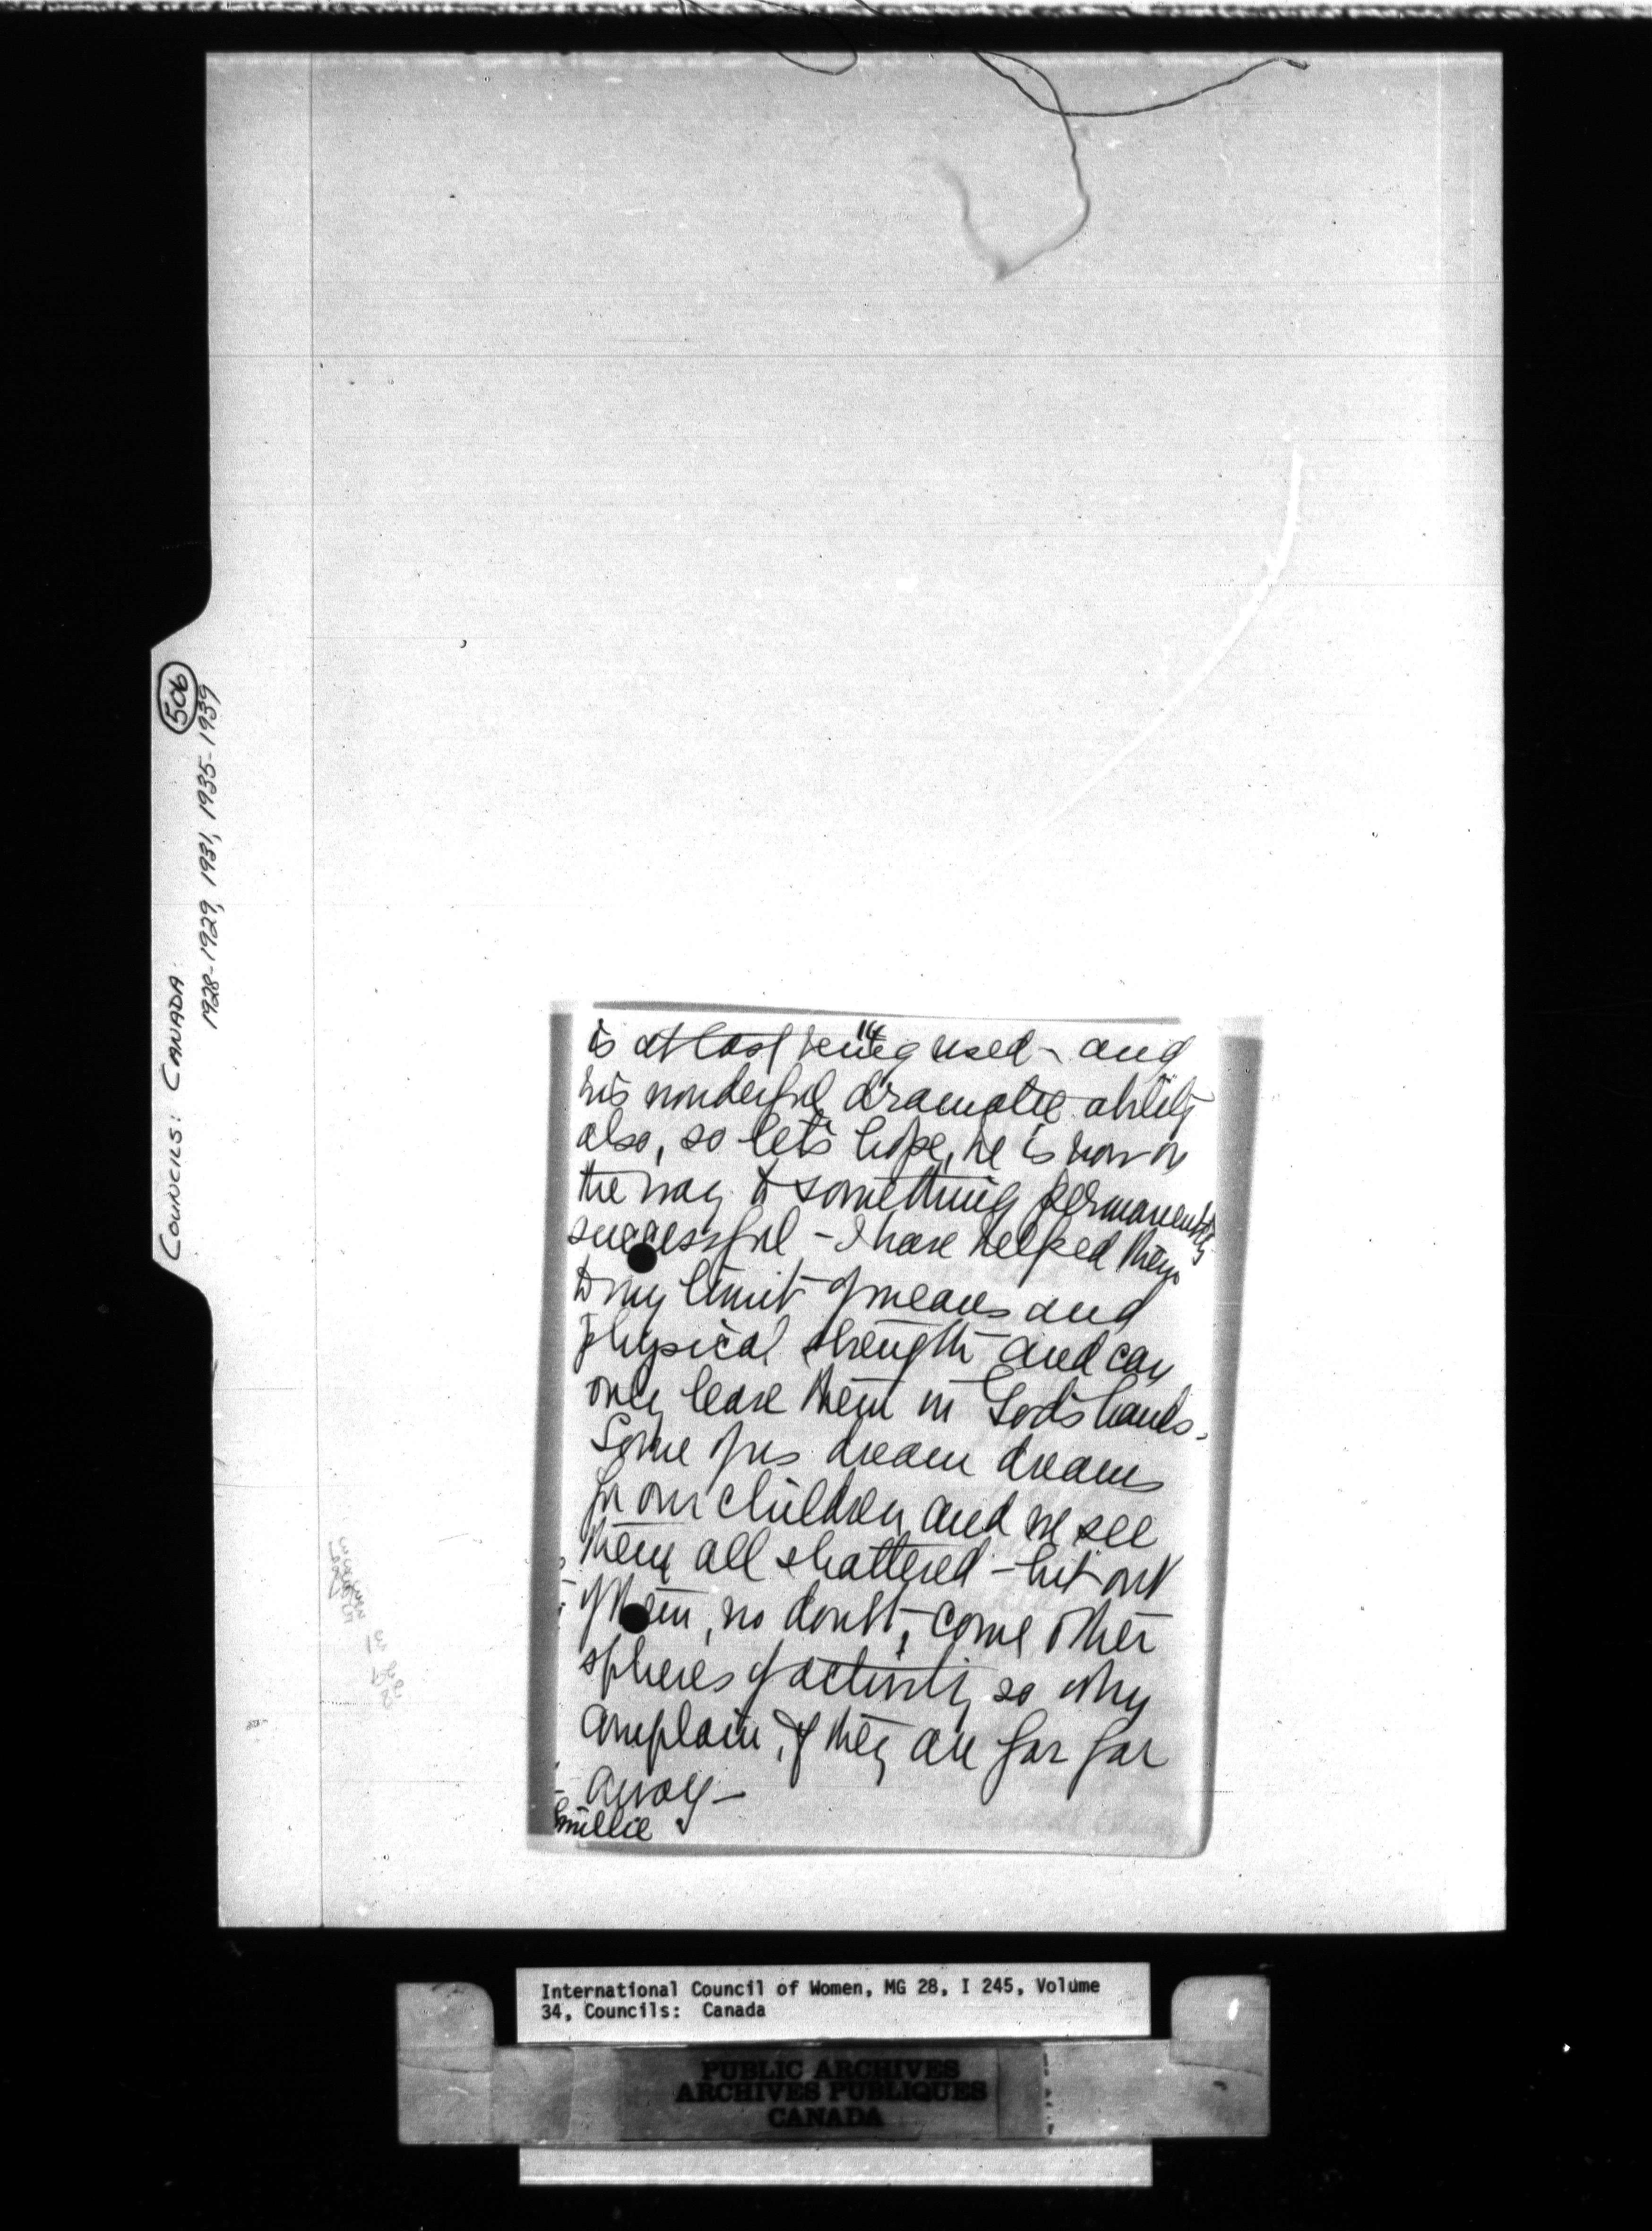 COUNCILS: CANADA
506
1928-1929, 1931, 1935-1939
14
is at last being used - and
his wonderful dramatic ability
also, so let's hope, he is now on
the way to something permanently
successful - I have helped them
to my limit of means and
physical strength and can
only leave them in God's hands.
Some of us dream dreams
for our children and we see
them all shattered - but out
of them, no doubt, come other
spheres of activity so why
complain, if they are far far
away -
International Council of Women, MG 28, I 245, Volume
34, Councils: Canada
PUBLIC ARCHIVES
ARCHIVES PUBLIQUES
CANADA